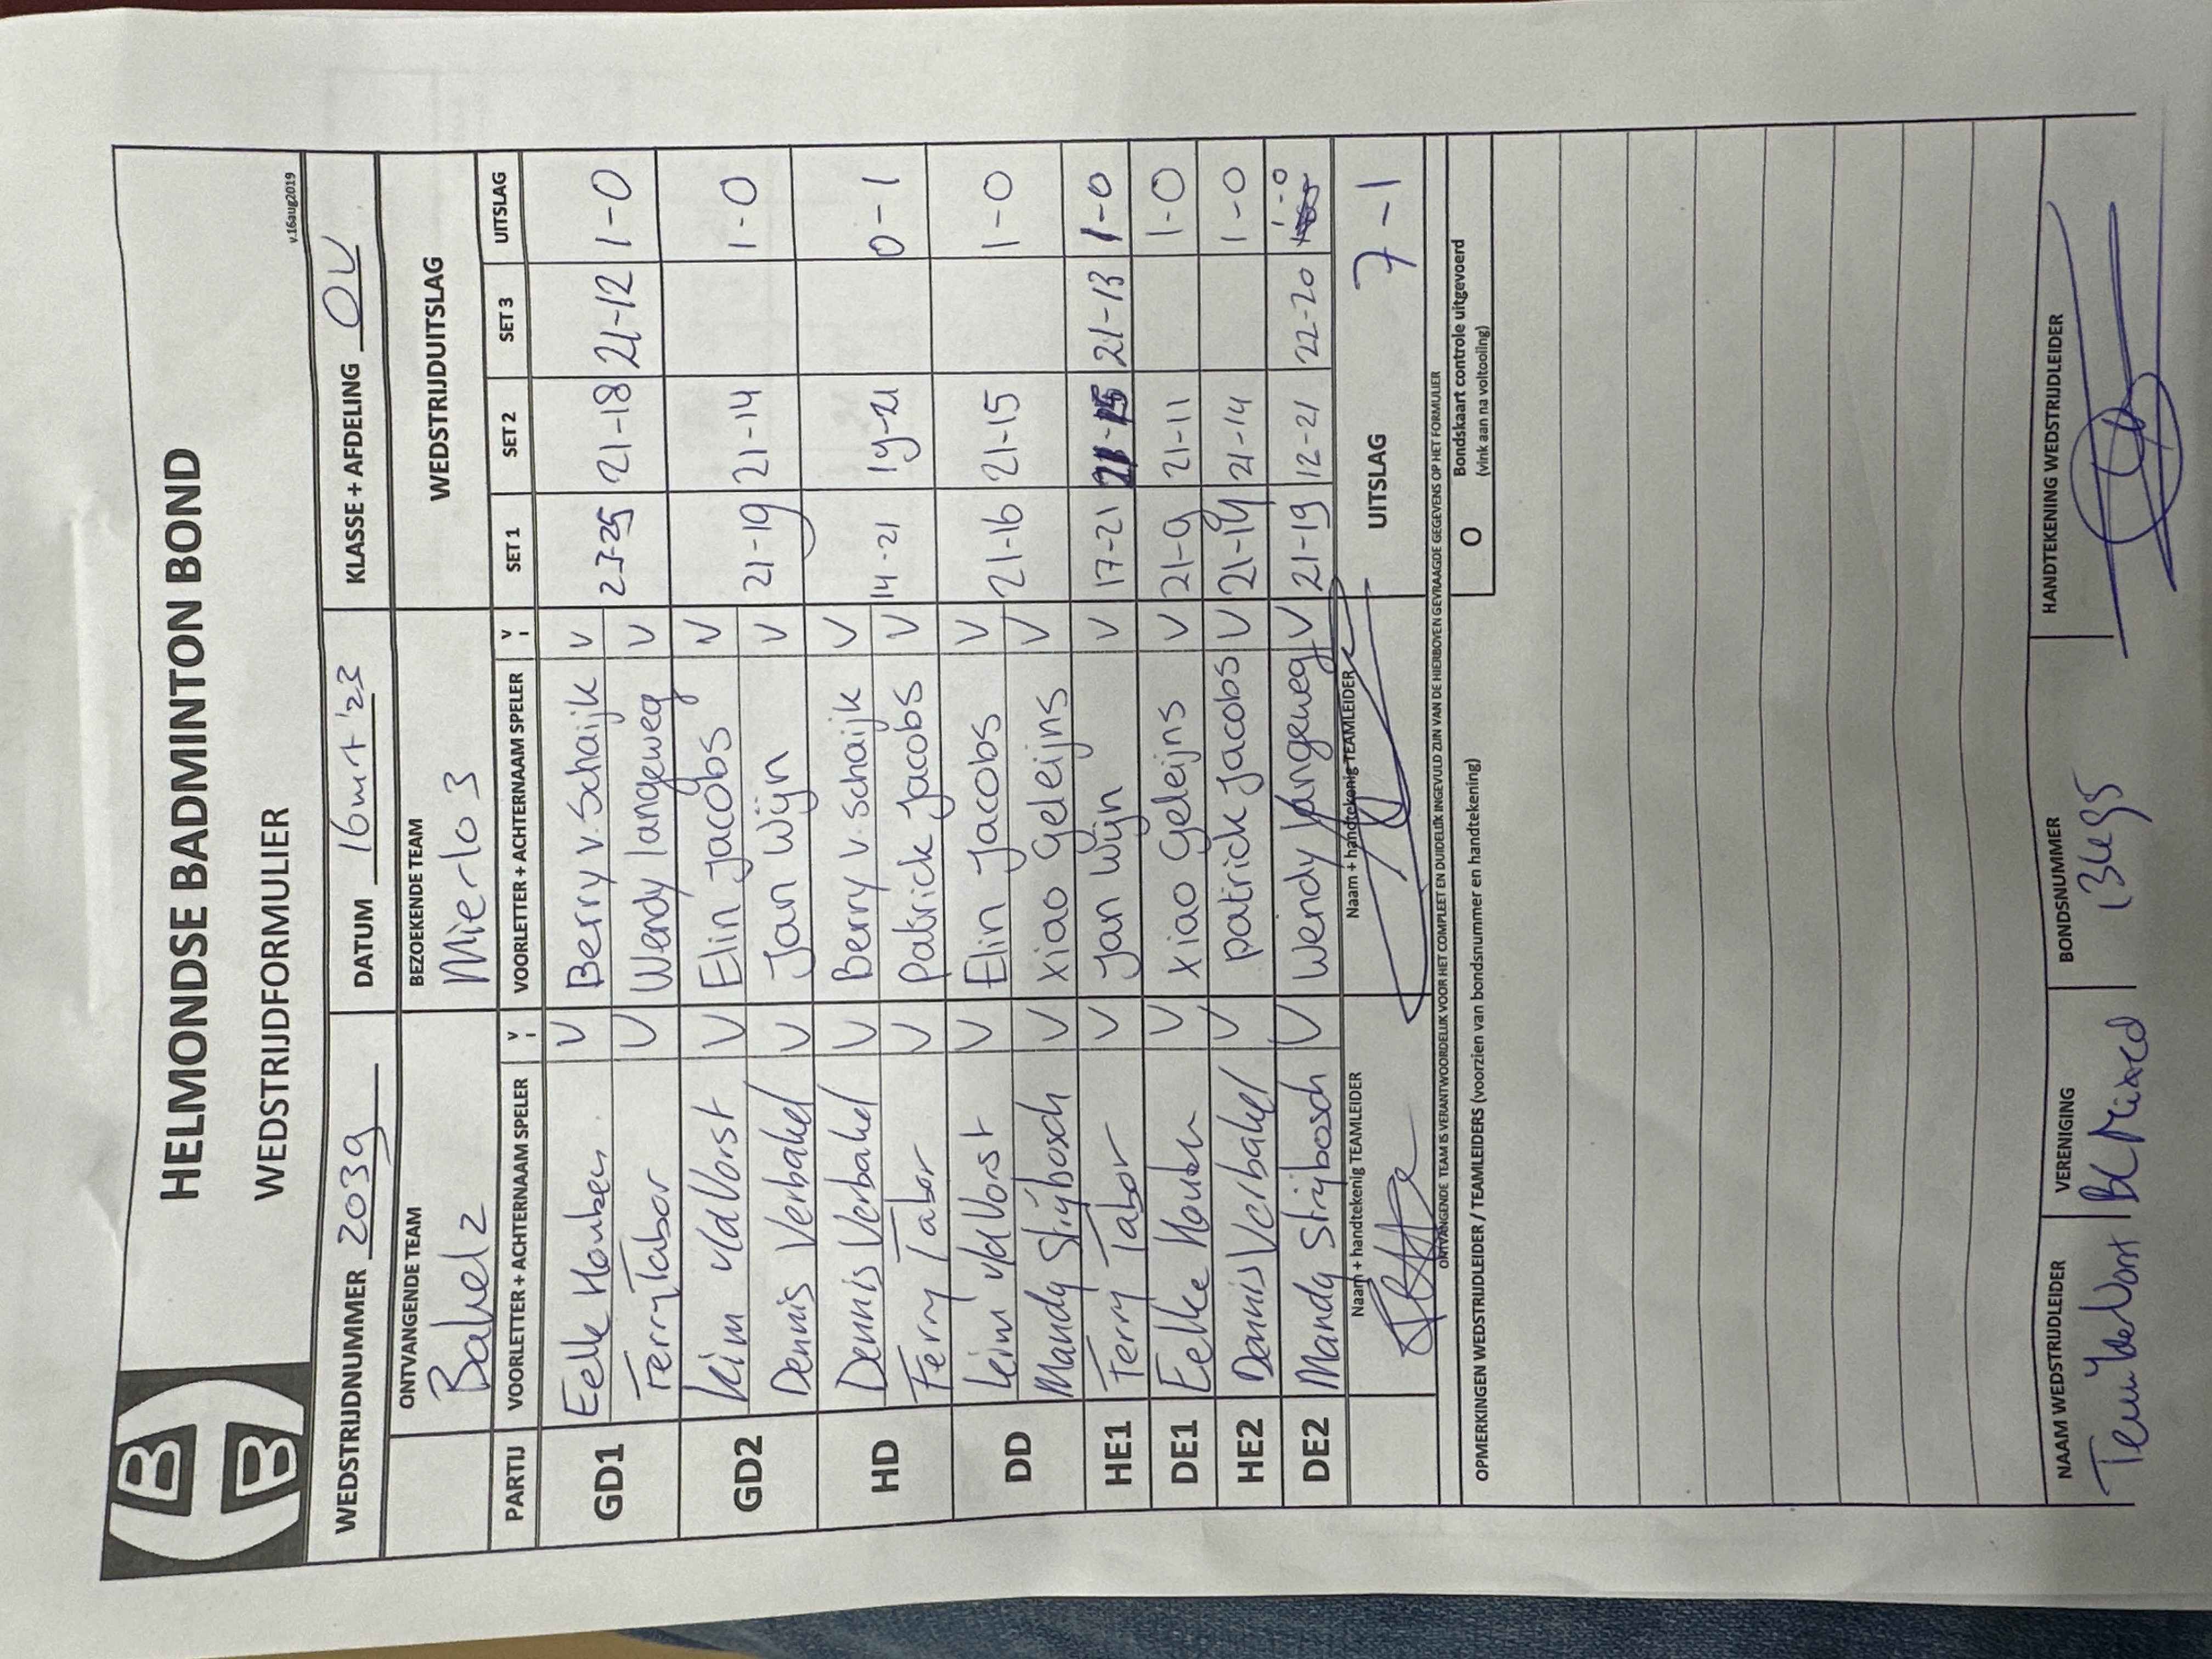 HELMONDSE BADMINTON BOND
WEDSTRIJDFORMULIER
v.16aug2019
WEDSTRIJDNUMMER 2039 DATUM 16 mrt '23 KLASSE + AFDELING OV
ONTVANGENDE TEAM BEZOEKENDE TEAM WEDSTRIJDUITSLAG
Bakel 2 Mierlo 3
PARTIJ VOORLETTER + ACHTERNAAM SPELER V VOORLETTER + ACHTERNAAM SPELER V SET 1 SET 2 SET 3 UITSLAG
GD1 Eelke Houben V Berry v. Schaijk V
Ferry Tabor V Wendy langeweg V 23-25 21-18 21-12 1-0
GD2 Kim vdVorst V Elin Jacobs V
Dennis Verbakel V Jan Wijn V 21-19 21-14 1-0
HD Dennis Verbakel V Berry v. Schaijk V
Ferry Tabor V Patrick Jacobs V 14-21 19-21 0-1
DD Kim vdVorst V Elin Jacobs V
Mandy Strijbosch V Xiao Geleijns V 21-16 21-15 1-0
HE1 Ferry Tabor V Jan Wijn V 17-21 21-15 21-13 1-0
DE1 Eelke Houben V Xiao Geleijns V 21-9 21-11 1-0
HE2 Dennis Verbakel V Patrick Jacobs V 21-14 1-0
DE2 Mandy Strijbosch V Wendy langeweg V 21-19 12-21 22-20 1-0
Naam + handtekenig TEAMLEIDER Naam + handtekenig TEAMLEIDER UITSLAG 7-1
ONTVANGENDE TEAM IS VERANTWOORDELIJK VOOR HET COMPLEET EN DUIDELIJK INGEVULD ZIJN VAN DE HIERBOVEN GEVRAAGDE GEGEVENS OP HET FORMULIER
OPMERKINGEN WEDSTRIJDLEIDER / TEAMLEIDERS (voorzien van bondsnummer en handtekening) O Bondskaart controle uitgevoerd
(vink aan na voltooiing)
NAAM WEDSTRIJDLEIDER VERENIGING BONDSNUMMER HANDTEKENING WEDSTRIJDLEIDER
BC